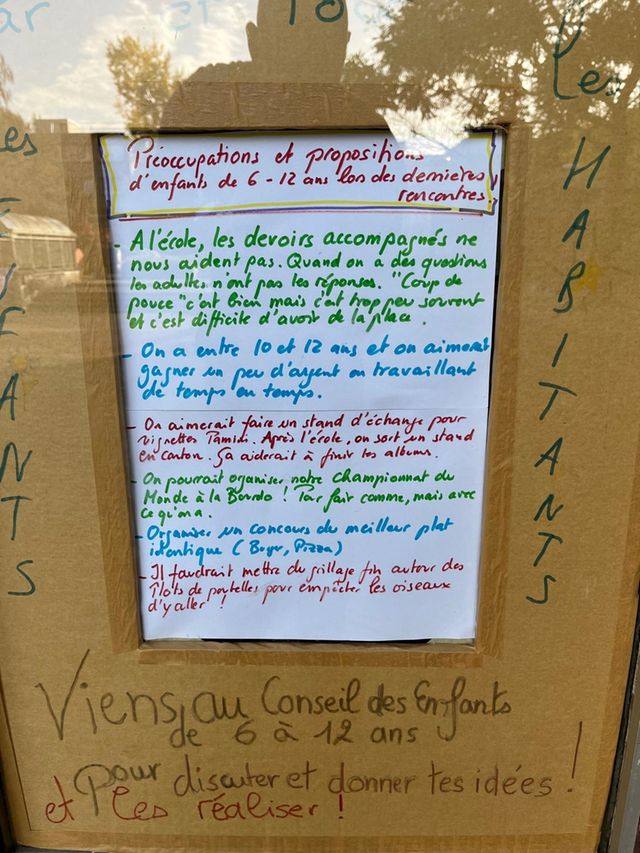 Préoccupations et propositions
d'enfants de 6-12 ans lors des dernières
rencontres.
- A l'école, les devoirs accompagnés ne
nous aident pas. Quand on a des questions
les adultes n'ont pas les réponses. "Coup de
pouce" c'est bien mais c'est trop peu souvent
et c'est difficile d'avoir de la place.
- On a entre 10 et 12 ans et on aimerait
gagner un peu d'argent en travaillant
de temps en temps.
- On aimerait faire un stand d'échange pour
vignettes Panini. Après l'école, on sort un stand
en carton. Ça aiderait à finir les albums.
- On pourrait organiser notre championnat du
Monde à la Bourdo ! Par fair comme, mais avec
ce qu'on a.
- Organiser un concours du meilleur plat
identique (Burger, Pizza)
- Il faudrait mettre du grillage fin autour des
îlots de poubelles pour empêcher les oiseaux
d'y aller !
les
HABITANTS
Viens au Conseil des Enfants
de 6 à 12 ans
pour discuter et donner tes idées !
et les réaliser !